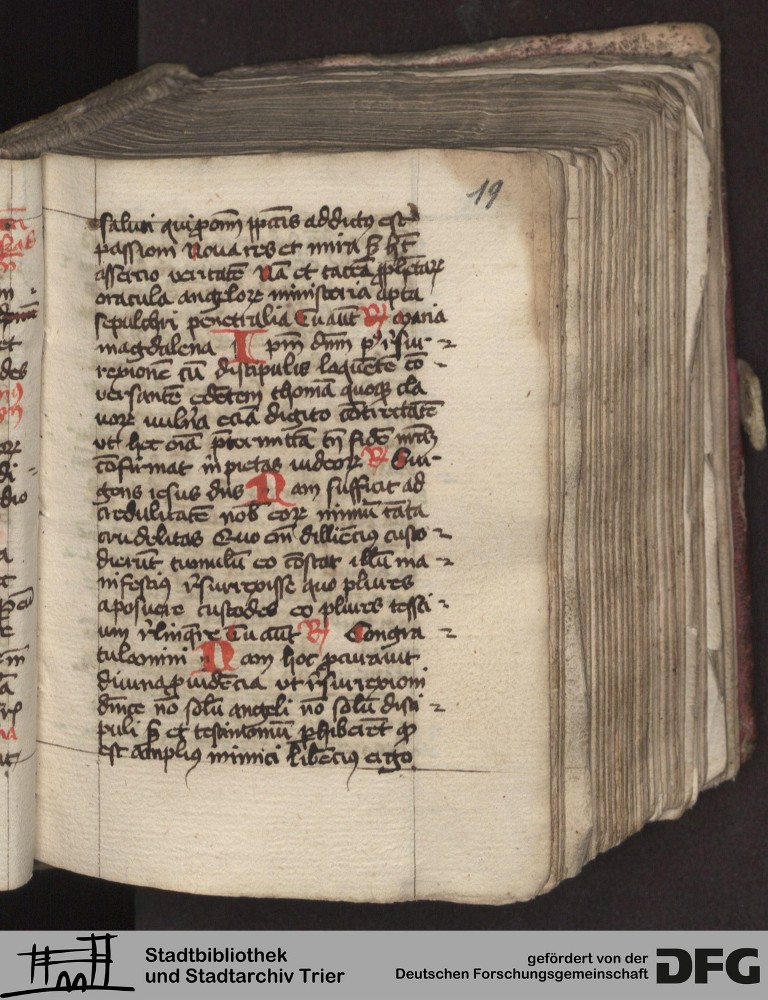 19
saluti qui ponm ppetis addictus est
passioni Noua res et mira sz ht
assertio veritate Na et tacea pphetaꝝ
oracula angeloꝝ ministeria apta
sepulchri penetralia Tu aut R Maria
magdalena Ipm dnm pꝰ rsur-
rexione cu discipulis loquete co-
versante edetem thoma quoqꝫ cla
uoꝝ vulna ecia digito cotrectate
vt hec oia ptermitta tn fide nraꝫ
cofirmat inpietas iudeoꝝ R Sur-
gens iesus dns Nam sufficit ad
credulitate nob eoꝝ nimiu tata
crudelitas Quo em dillicius custo-
dierut tumulu eo costat illu ma-
nifestiꝰ rsurrexisse quo plures
aposuere custodes eo plures testi-
um rlinqre Tu aut R Congra-
tulamini Nam hoc pcurauit
diuina puidecia vt rsurrexioni
dnice no solu angeli no solu disci-
puli sz et testimoniu phiberet qꝫ
est ampliꝰ inimici libeciꝰ ergo
Stadtbibliothek
und Stadtarchiv Trier
gefördert von der
Deutschen Forschungsgemeinschaft
DFG